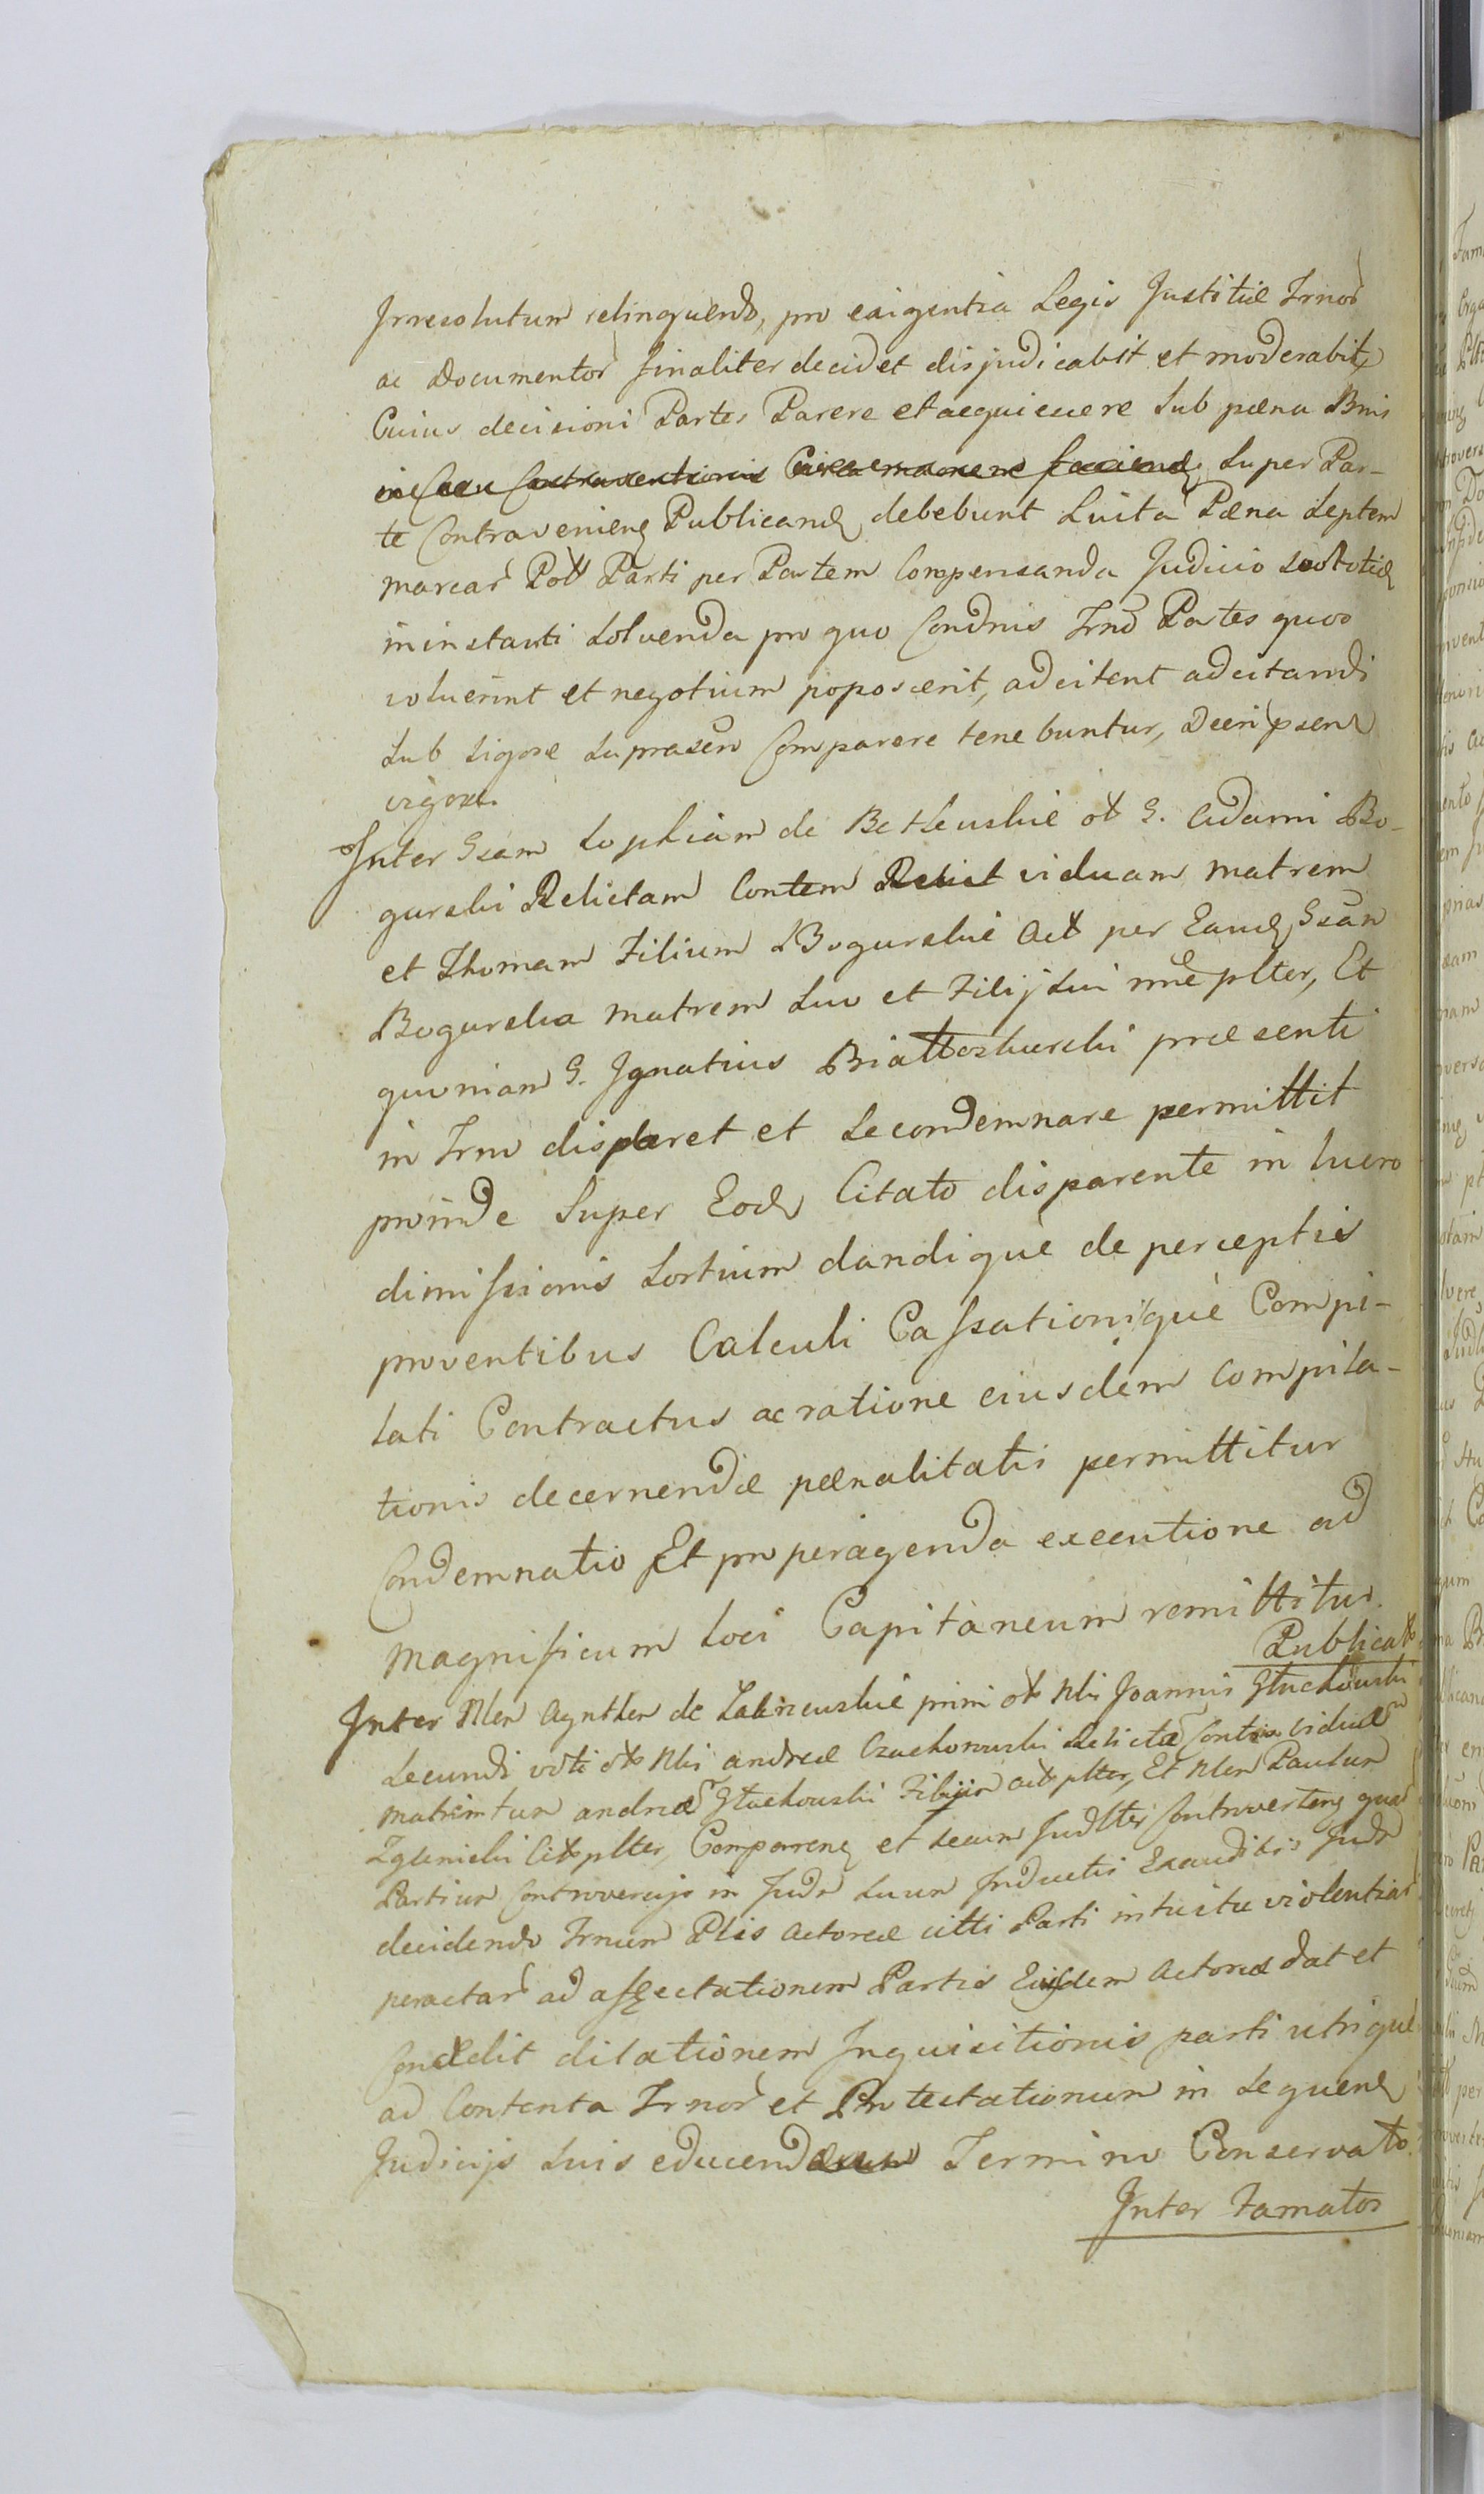 Irresolutum relinquendo, pro exigentia Legis Justitiæ Trnor
ac Documentor finaliter decidet disjudicabit et moderabit
Cuius decisioni Partes Parere et acquiescere sub pæna Bnis
in Casu Contraventionis super Par-
te Contravenien Publicand debebunt Luita Pæna septem
marcar Poll Parti per Partem Compensanda Judicio
in instanti solvenda pro quo Condnis Trno Partes quos
voluerint et negotium poposcerit, adcitent adcitandi
sub rigore suprascro Comparere tenebuntur, Decri præsent
vigore.
Inter Gsam Sophiam de ot G. Adami Bo-
gurski Relictam Contem Relict viduam matrem
et Thomam Filium Bogurskie Act per Eand Gsan
Bogurska matrem suo et Filij sui nne plter, Et
quoniam G. Ignatius Białłoskurski præsenti
in Trno disparet et se condemnare permittit
proinde super Eod Citato disparente in lucro
dimissionis sortium dandique de perceptis
proventibus Calculi Cassationisque Compi-
lati Contractus ac ratione eiusdem compila-
tionis decernendæ pænalitatis permittitur
Condemnatio Et pro peragenda executione ad
Magnificum loci Capitaneum remittitur.
Publicat
Inter Nlen Agnthen de primi ot Nlis Joannis Głuchowski
secundi voti ot Nlis andreæ Czachorowski Relictæ viduæ
matrem tun andreæ Głuchowski Filium act plter, Et Nlen Paulun
Zglenicki Cit plter, Comparen et secum Judlter Controverten quar
Partium Controversijs in Judm suum Inductis Exauditis Judm
decidendo Trnum Ptis Actoreæ citti Parti intuitu violentiar
peractar ad affectationem Partis Eiusdem Actoreæ dat et
Concedit dilationem Inquisitionis parti utrique
ad Contenta Trnor et Protestationum in sequen
Judicijs suis educend Termino Conservato.
Inter Famatos